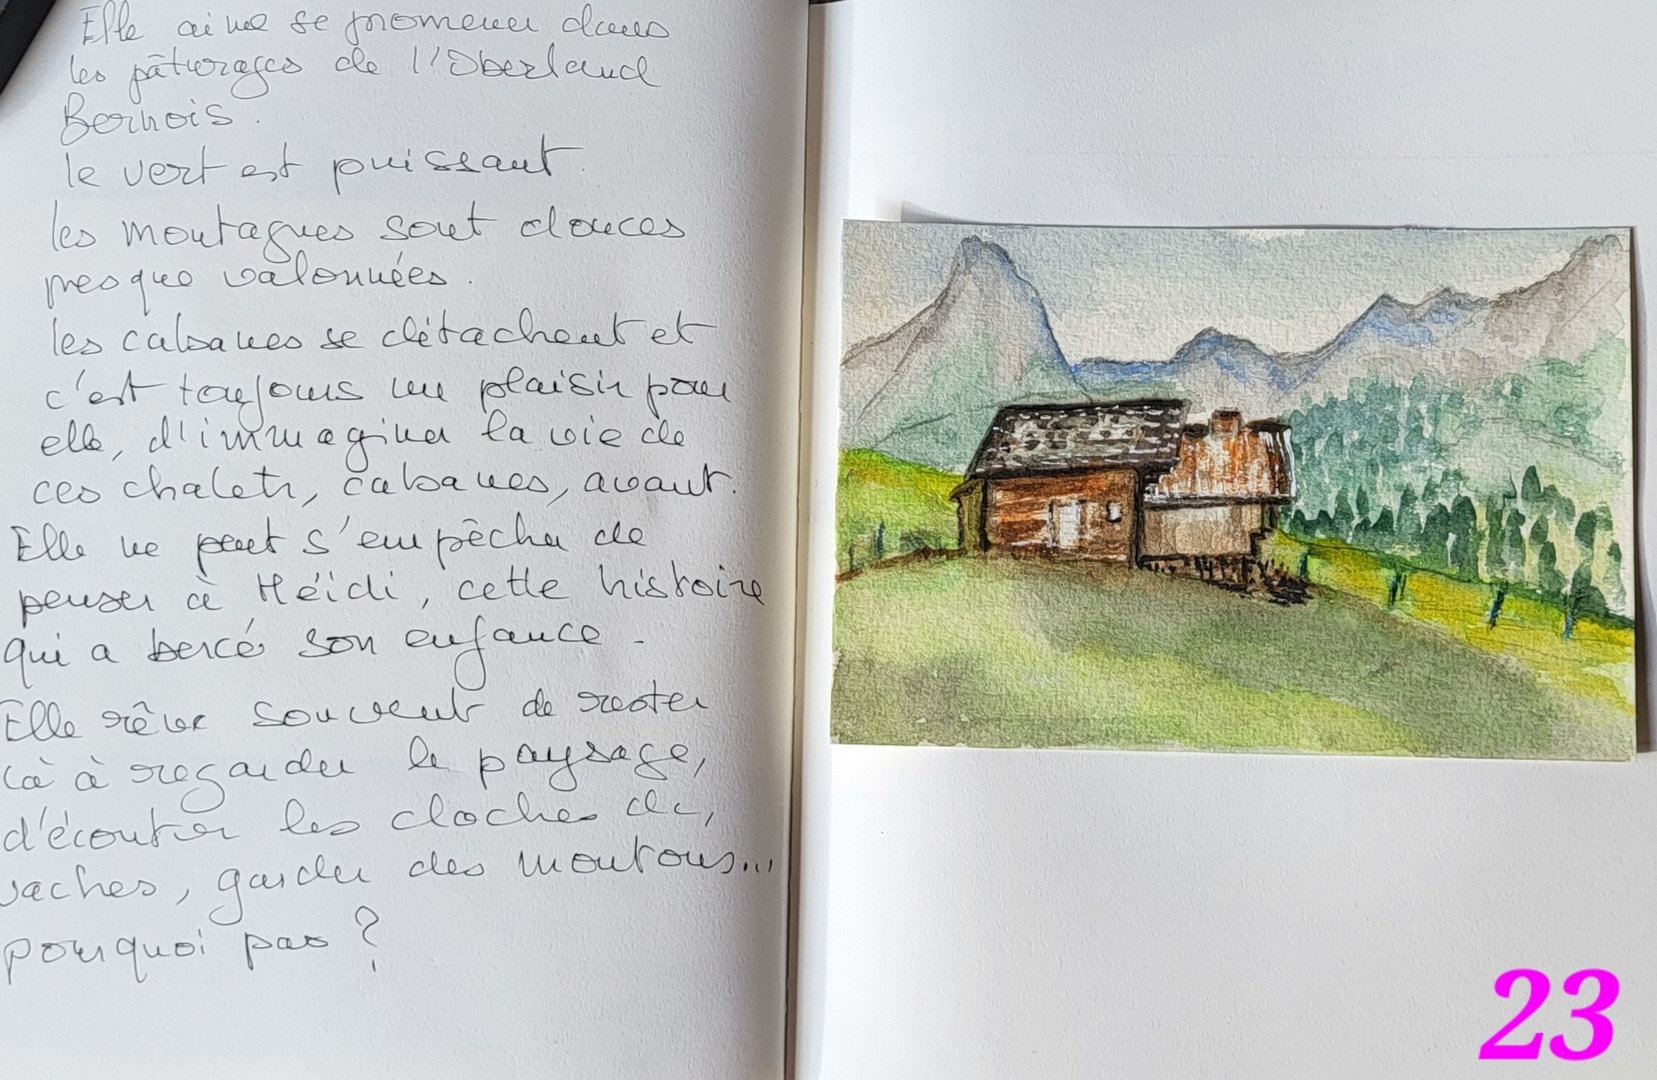 Elle aime se promener dans
les pâturages de l'Oberland
Bernois.
le vert est puissant.
les montagnes sont douces
presque valonnées.
les cabanes se détachent et
c'est toujours un plaisir pour
elle, d'immaginer la vie de
ces chalets, cabanes, avant.
Elle ne peut s'empêcher de
penser à Héidi, cette histoire
qui a bercé son enfance -
Elle rêve souvent de rester
là à regarder le paysage,
d'écouter les cloches des
vaches, garder des moutons...
pourquoi pas ?
23